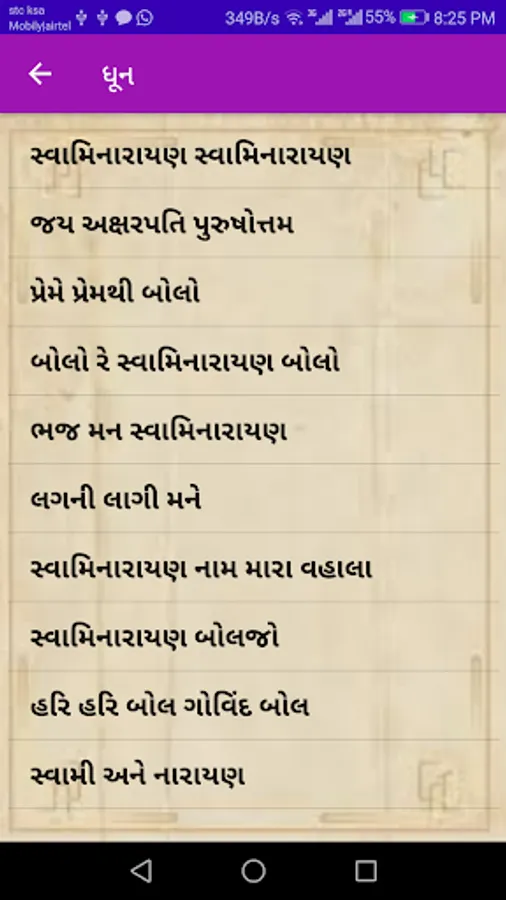 stc ksa
Mobily|airtel
349B/s 3G 2G 55% 8:25 PM
ધૂન
સ્વામિનારાયણ સ્વામિનારાયણ
જય અક્ષરપતિ પુરુષોત્તમ
પ્રેમે પ્રેમથી બોલો
બોલો રે સ્વામિનારાયણ બોલો
ભજ મન સ્વામિનારાયણ
લગની લાગી મને
સ્વામિનારાયણ નામ મારા વહાલા
સ્વામિનારાયણ બોલજો
હરિ હરિ બોલ ગોવિંદ બોલ
સ્વામી અને નારાયણ